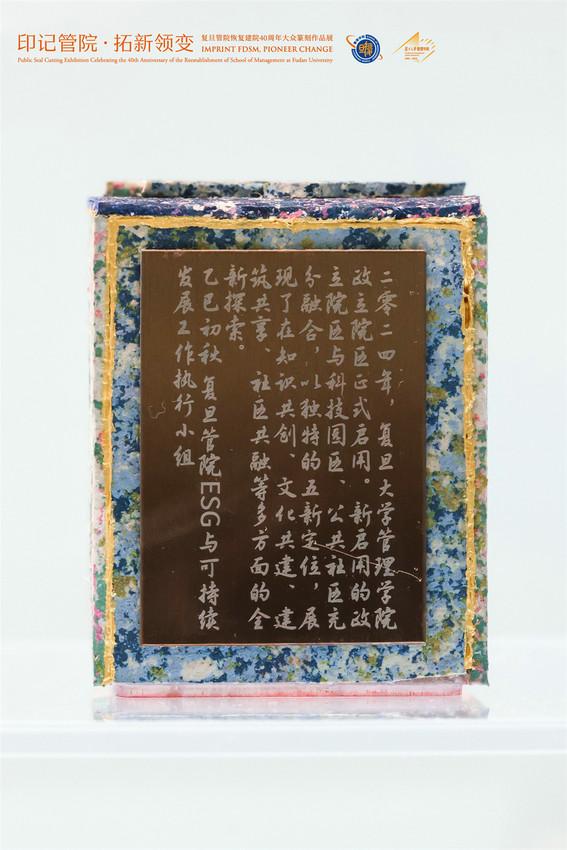 印记管院·拓新领变
复旦管院恢复建院40周年大众篆刻作品展
IMPRINT FDSM, PIONEER CHANGE
Public Seal Cutting Exhibition Celebrating the 40th Anniversary of the Reestablishment of School of Management at Fudan University
二零二四年，复旦大学管理学院
政立院区正式启用。新启用的政
立院区与科技园区、公共社区充
分融合，以独特的五新定位，展
现了在知识共创、文化共建、建
筑共享、社区共融等多方面的全
新探索。
乙巳初秋 复旦管院ESG与可持续
发展工作执行小组